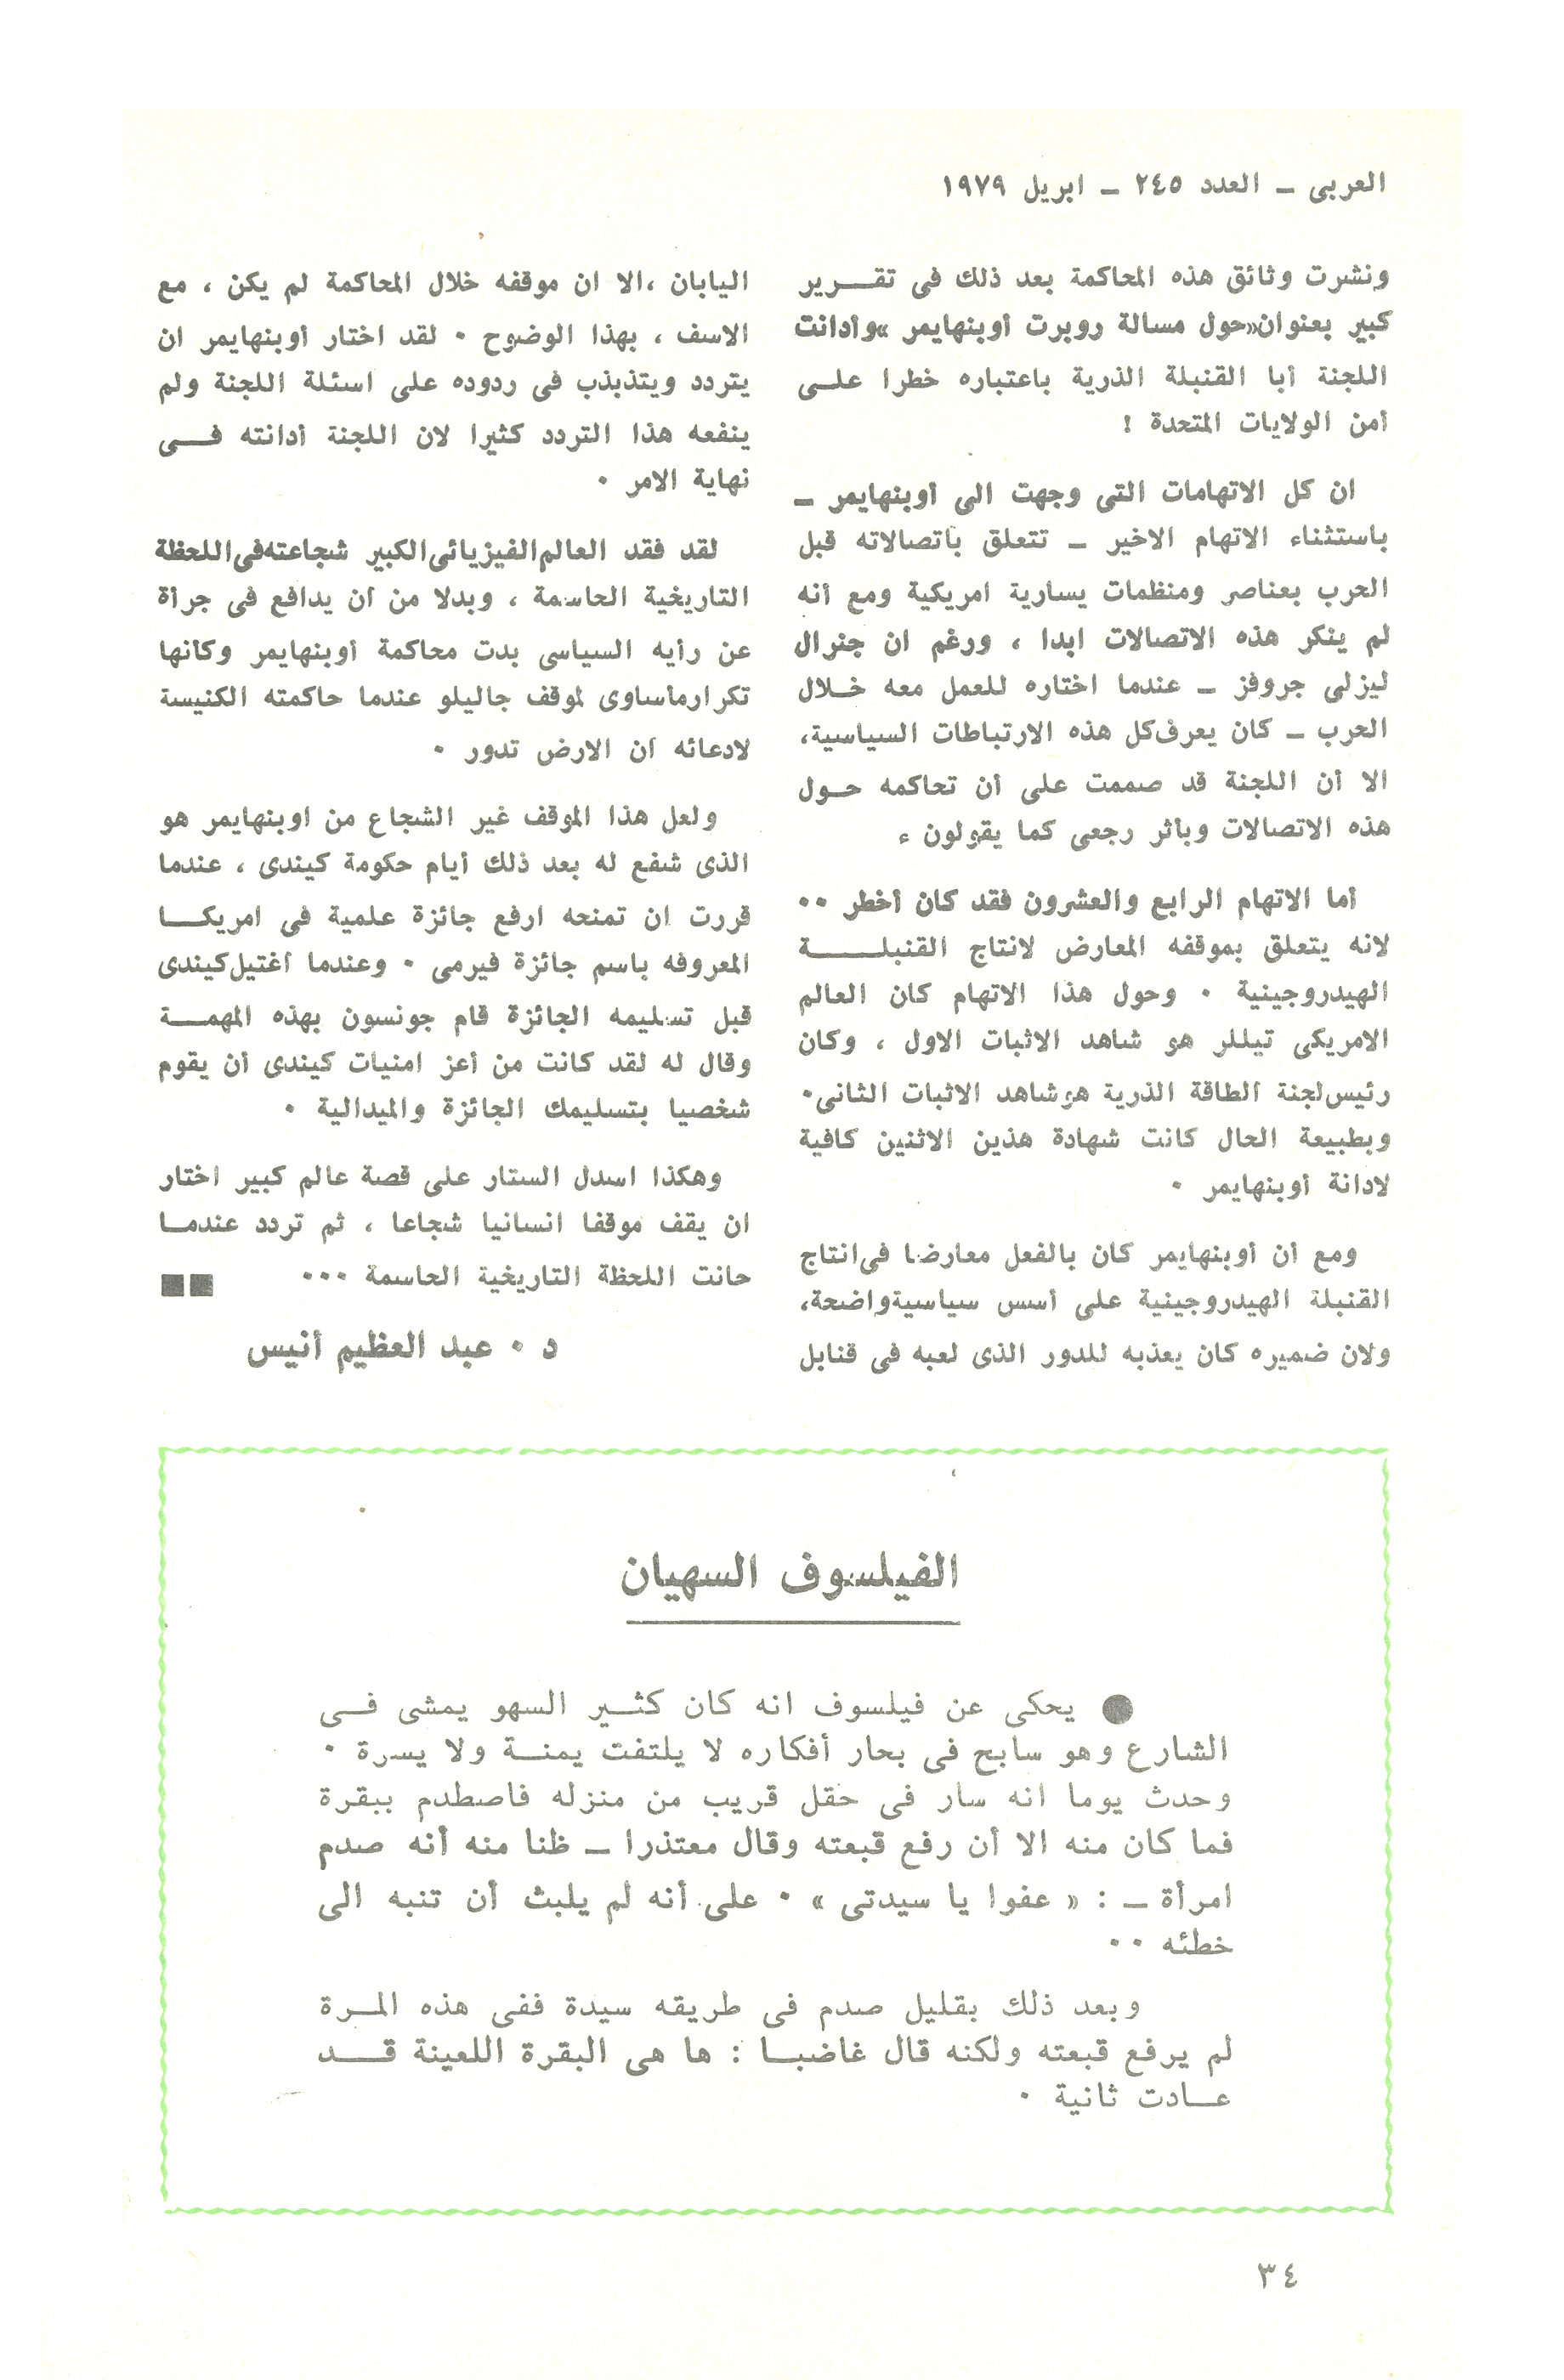 العربى – العدد ٢٤٥ – ابريل ١٩٧٩
ونشرت وثائق هذه المحاكمة بعد ذلك فى تقـــرير
كبير بعنوان«حول مسالة روبرت أوبنهايمر »وأدانت
اللجنة أبا القنبلة الذرية باعتباره خطرا علــى
أمن الولايات المتحدة !
ان كل الاتهامات التى وجهت الى أوبنهايمر –
باستثناء الاتهام الاخير – تتعلق باتصالاته قبل
الحرب بعناصر ومنظمات يسارية امريكية ومع أنه
لم ينكر هذه الاتصالات ابدا ، ورغم ان جنرال
ليزلى جروفز – عندما اختاره للعمل معه خــلال
الحرب – كان يعرف كل هذه الارتباطات السياسية،
الا أن اللجنة قد صممت على أن تحاكمه حــول
هذه الاتصالات وبأثر رجعى كما يقولون ء
أما الاتهام الرابع والعشرون فقد كان أخطر ٠٠
لانه يتعلق بموقفه المعارض لانتاج القنبلـــــة
الهيدروجينية ٠ وحول هذا الاتهام كان العالم
الامريكى تيللر هو شاهد الاثبات الاول ، وكان
رئيس لجنة الطاقة الذرية هو شاهد الاثبات الثانى٠
وبطبيعة الحال كانت شهادة هذين الاثنين كافية
لادانة أوبنهايمر ٠
ومع أن أوبنهايمر كان بالفعل معارضا فى انتاج
القنبلة الهيدروجينية على أسس سياسية واضحة،
ولان ضميره كان يعذبه للدور الذى لعبه فى قنابل
اليابان ،الا ان موقفه خلال المحاكمة لم يكن ، مع
الاسف ، بهذا الوضوح ٠ لقد اختار أوبنهايمر ان
يتردد ويتذبذب فى ردوده على اسئلة اللجنة ولم
ينفعه هذا التردد كثيرا لان اللجنة أدانته فـــى
نهاية الامر ٠
لقد فقد العالم الفيزيائى الكبير شجاعته فى اللحظة
التاريخية الحاسمة ، وبدلا من أن يدافع فى جرأة
عن رأيه السياسى بدت محاكمة أوبنهايمر وكأنها
تكرار مأساوى لموقف جاليلو عندما حاكمته الكنيسة
لادعائه أن الارض تدور ٠
ولعل هذا الموقف غير الشجاع من اوبنهايمر هو
الذى شفع له بعد ذلك أيام حكومة كيندى ، عندما
قررت ان تمنحه ارفع جائزة علمية فى امريكــا
المعروفه باسم جائزة فيرمى ٠ وعندما اغتيل كيندى
قبل تسليمه الجائزة قام جونسون بهذه المهمـــة
وقال له لقد كانت من أعز امنيات كيندى أن يقوم
شخصيا بتسليمك الجائزة والميدالية ٠
وهكذا اسدل الستار على قصة عالم كبير اختار
ان يقف موقفا انسانيا شجاعا ، ثم تردد عندمــا
حانت اللحظة التاريخية الحاسمة ٠٠٠
د ٠ عبد العظيم أنيس
الفيلسوف السهيان
● يحكى عن فيلسوف انه كان كثــير السهو يمشى فــى
الشارع وهو سابح فى بحار أفكاره لا يلتفت يمنــة ولا يسرة ٠
وحدث يوما انه سار فى حقل قريب من منزله فاصطدم ببقرة
فما كان منه الا أن رفع قبعته وقال معتذرا – ظنا منه أنه صدم
امرأة – : « عفوا يا سيدتى » ٠ على أنه لم يلبث أن تنبه الى
خطئه ٠٠
وبعد ذلك بقليل صدم فى طريقه سيدة ففى هذه المــرة
لم يرفع قبعته ولكنه قال غاضبــا : ها هى البقرة اللعينة قـــد
عــادت ثانية ٠
٣٤